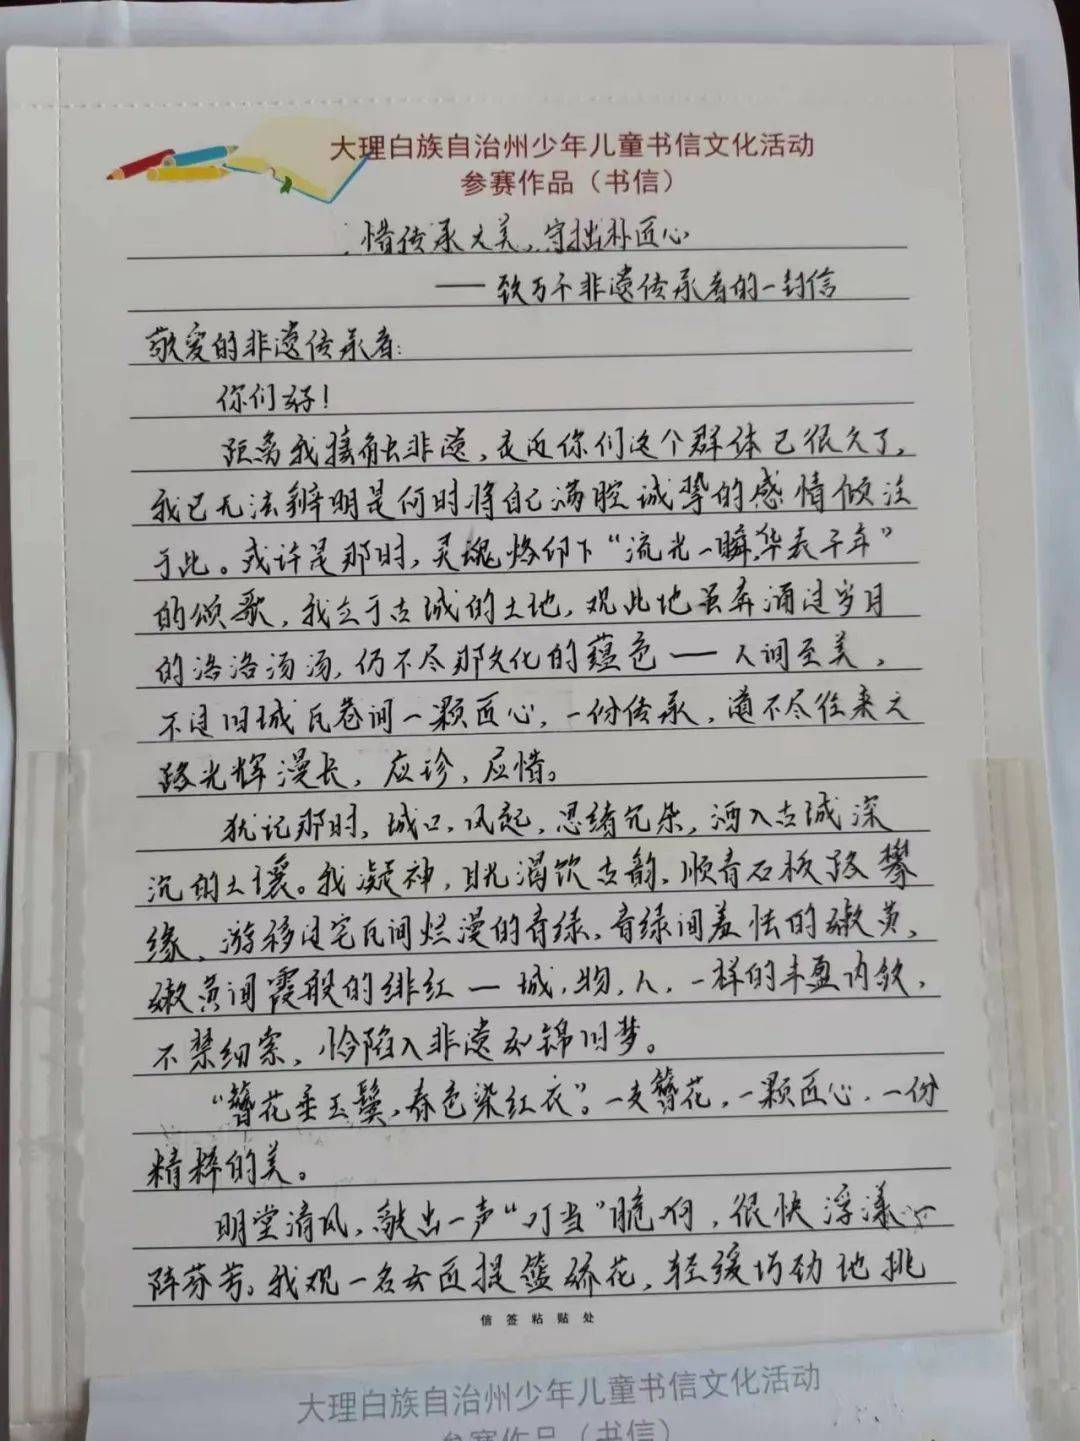 大理白族自治州少年儿童书信文化活动
参赛作品（书信）
惜传承大美，守拙朴匠心
——致万千非遗传承者的一封信
敬爱的非遗传承者：
你们好！
距离我接触非遗，走近你们这个群体已很久了，
我已无法辨明是何时将自己满腔诚挚的感情倾注
于此。或许是那时，灵魂烙印下“流光一瞬，华表千年”
的颂歌，我立于古城的土地，观此地虽奔涌过岁月
的浩浩汤汤，仍不尽那文化的蕴色——人间至美，
不过旧城瓦巷间一颗匠心，一份传承，道不尽往来之
路光辉漫长，应珍，应惜。
犹记那时，城口，风起，思绪冗杂，洒入古城深
沉的土壤。我凝神，目光渴饮古韵，顺青石板路攀
缘，游移过宅瓦间烂漫的青绿，青绿间羞怯的嫩黄，
嫩黄间霞般的绯红——城，物，人，一样的丰盈内敛，
不禁细索，恰陷入非遗如锦旧梦。
“簪花垂玉鬓，春色染红衣”。一支簪花，一颗匠心，一份
精粹的美。
明堂清风，敲出一声“叮当”脆响，很快浮漾一
阵芬芳。我观一名女匠提篮娇花，轻缓巧劲地挑
信签粘贴处
大理白族自治州少年儿童书信文化活动
参赛作品（书信）